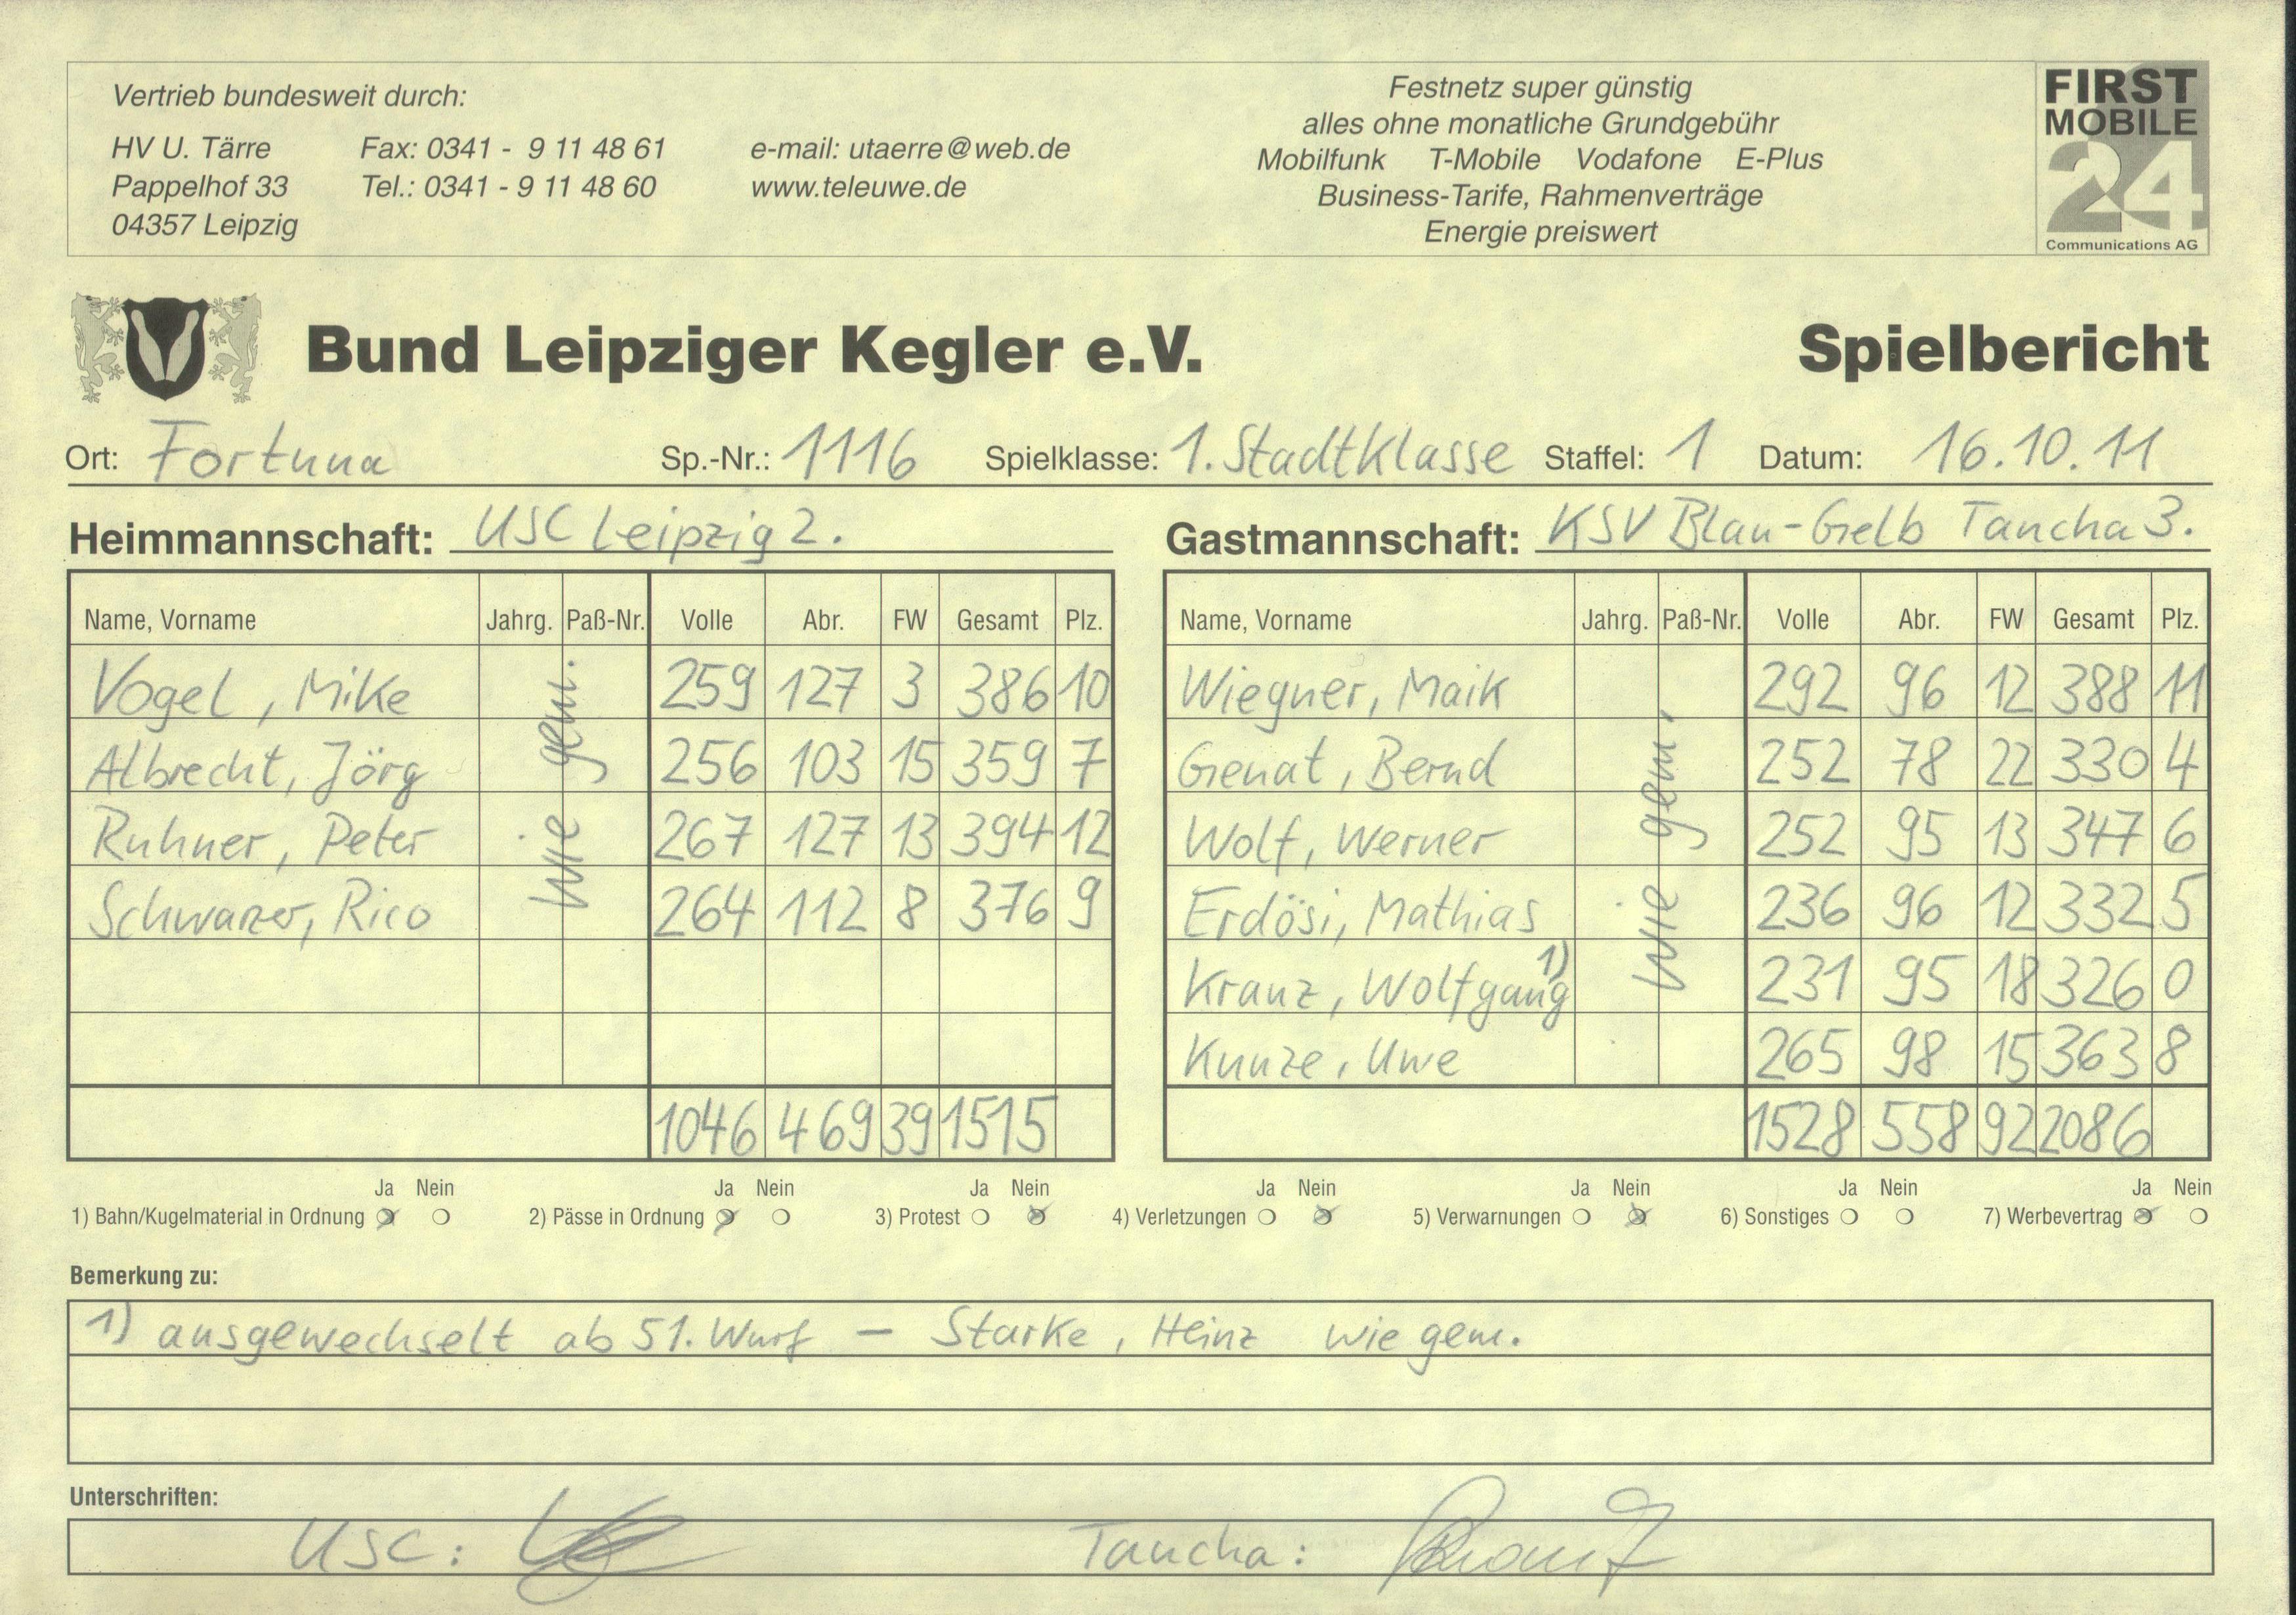 Vertrieb bundesweit durch:
HV U. Tärre Fax: 0341 - 9 11 48 61 e-mail: utaerre@web.de
Pappelhof 33 Tel.: 0341 - 9 11 48 60 www.teleuwe.de
04357 Leipzig
Festnetz super günstig
alles ohne monatliche Grundgebühr
Mobilfunk T-Mobile Vodafone E-Plus
Business-Tarife, Rahmenverträge
Energie preiswert
FIRST
MOBILE
24
Communications AG
Bund Leipziger Kegler e.V. Spielbericht
Ort: Fortuna Sp.-Nr.: 1116 Spielklasse: 1. Stadtklasse Staffel: 1 Datum: 16.10.11
Heimmannschaft: USC Leipzig 2.
Name, Vorname Jahrg. Paß-Nr. Volle Abr. FW Gesamt Plz.
Vogel, Mike 259 127 3 386 10
Albrecht, Jörg 256 103 15 359 7
Ruhner, Peter 267 127 13 394 12
Schwarzer, Rico 264 112 8 376 9
wie gem.
1046 469 39 1515
Gastmannschaft: KSV Blau-Gelb Taucha 3.
Name, Vorname Jahrg. Paß-Nr. Volle Abr. FW Gesamt Plz.
Wiegner, Maik 292 96 12 388 11
Genat, Bernd 252 78 22 330 4
Wolf, Werner 252 95 13 347 6
Erdösi, Mathias 236 96 12 332 5
Kranz, Wolfgang 1) 231 95 18 326 0
Kunze, Uwe 265 98 15 363 8
wie gem.
1528 558 92 2086
Ja Nein Ja Nein Ja Nein Ja Nein Ja Nein Ja Nein Ja Nein
1) Bahn/Kugelmaterial in Ordnung 2) Pässe in Ordnung 3) Protest 4) Verletzungen 5) Verwarnungen 6) Sonstiges 7) Werbevertrag
Bemerkung zu:
1) ausgewechselt ab 51. Wurf – Starke, Heinz wie gem.
Unterschriften:
USC: Taucha: